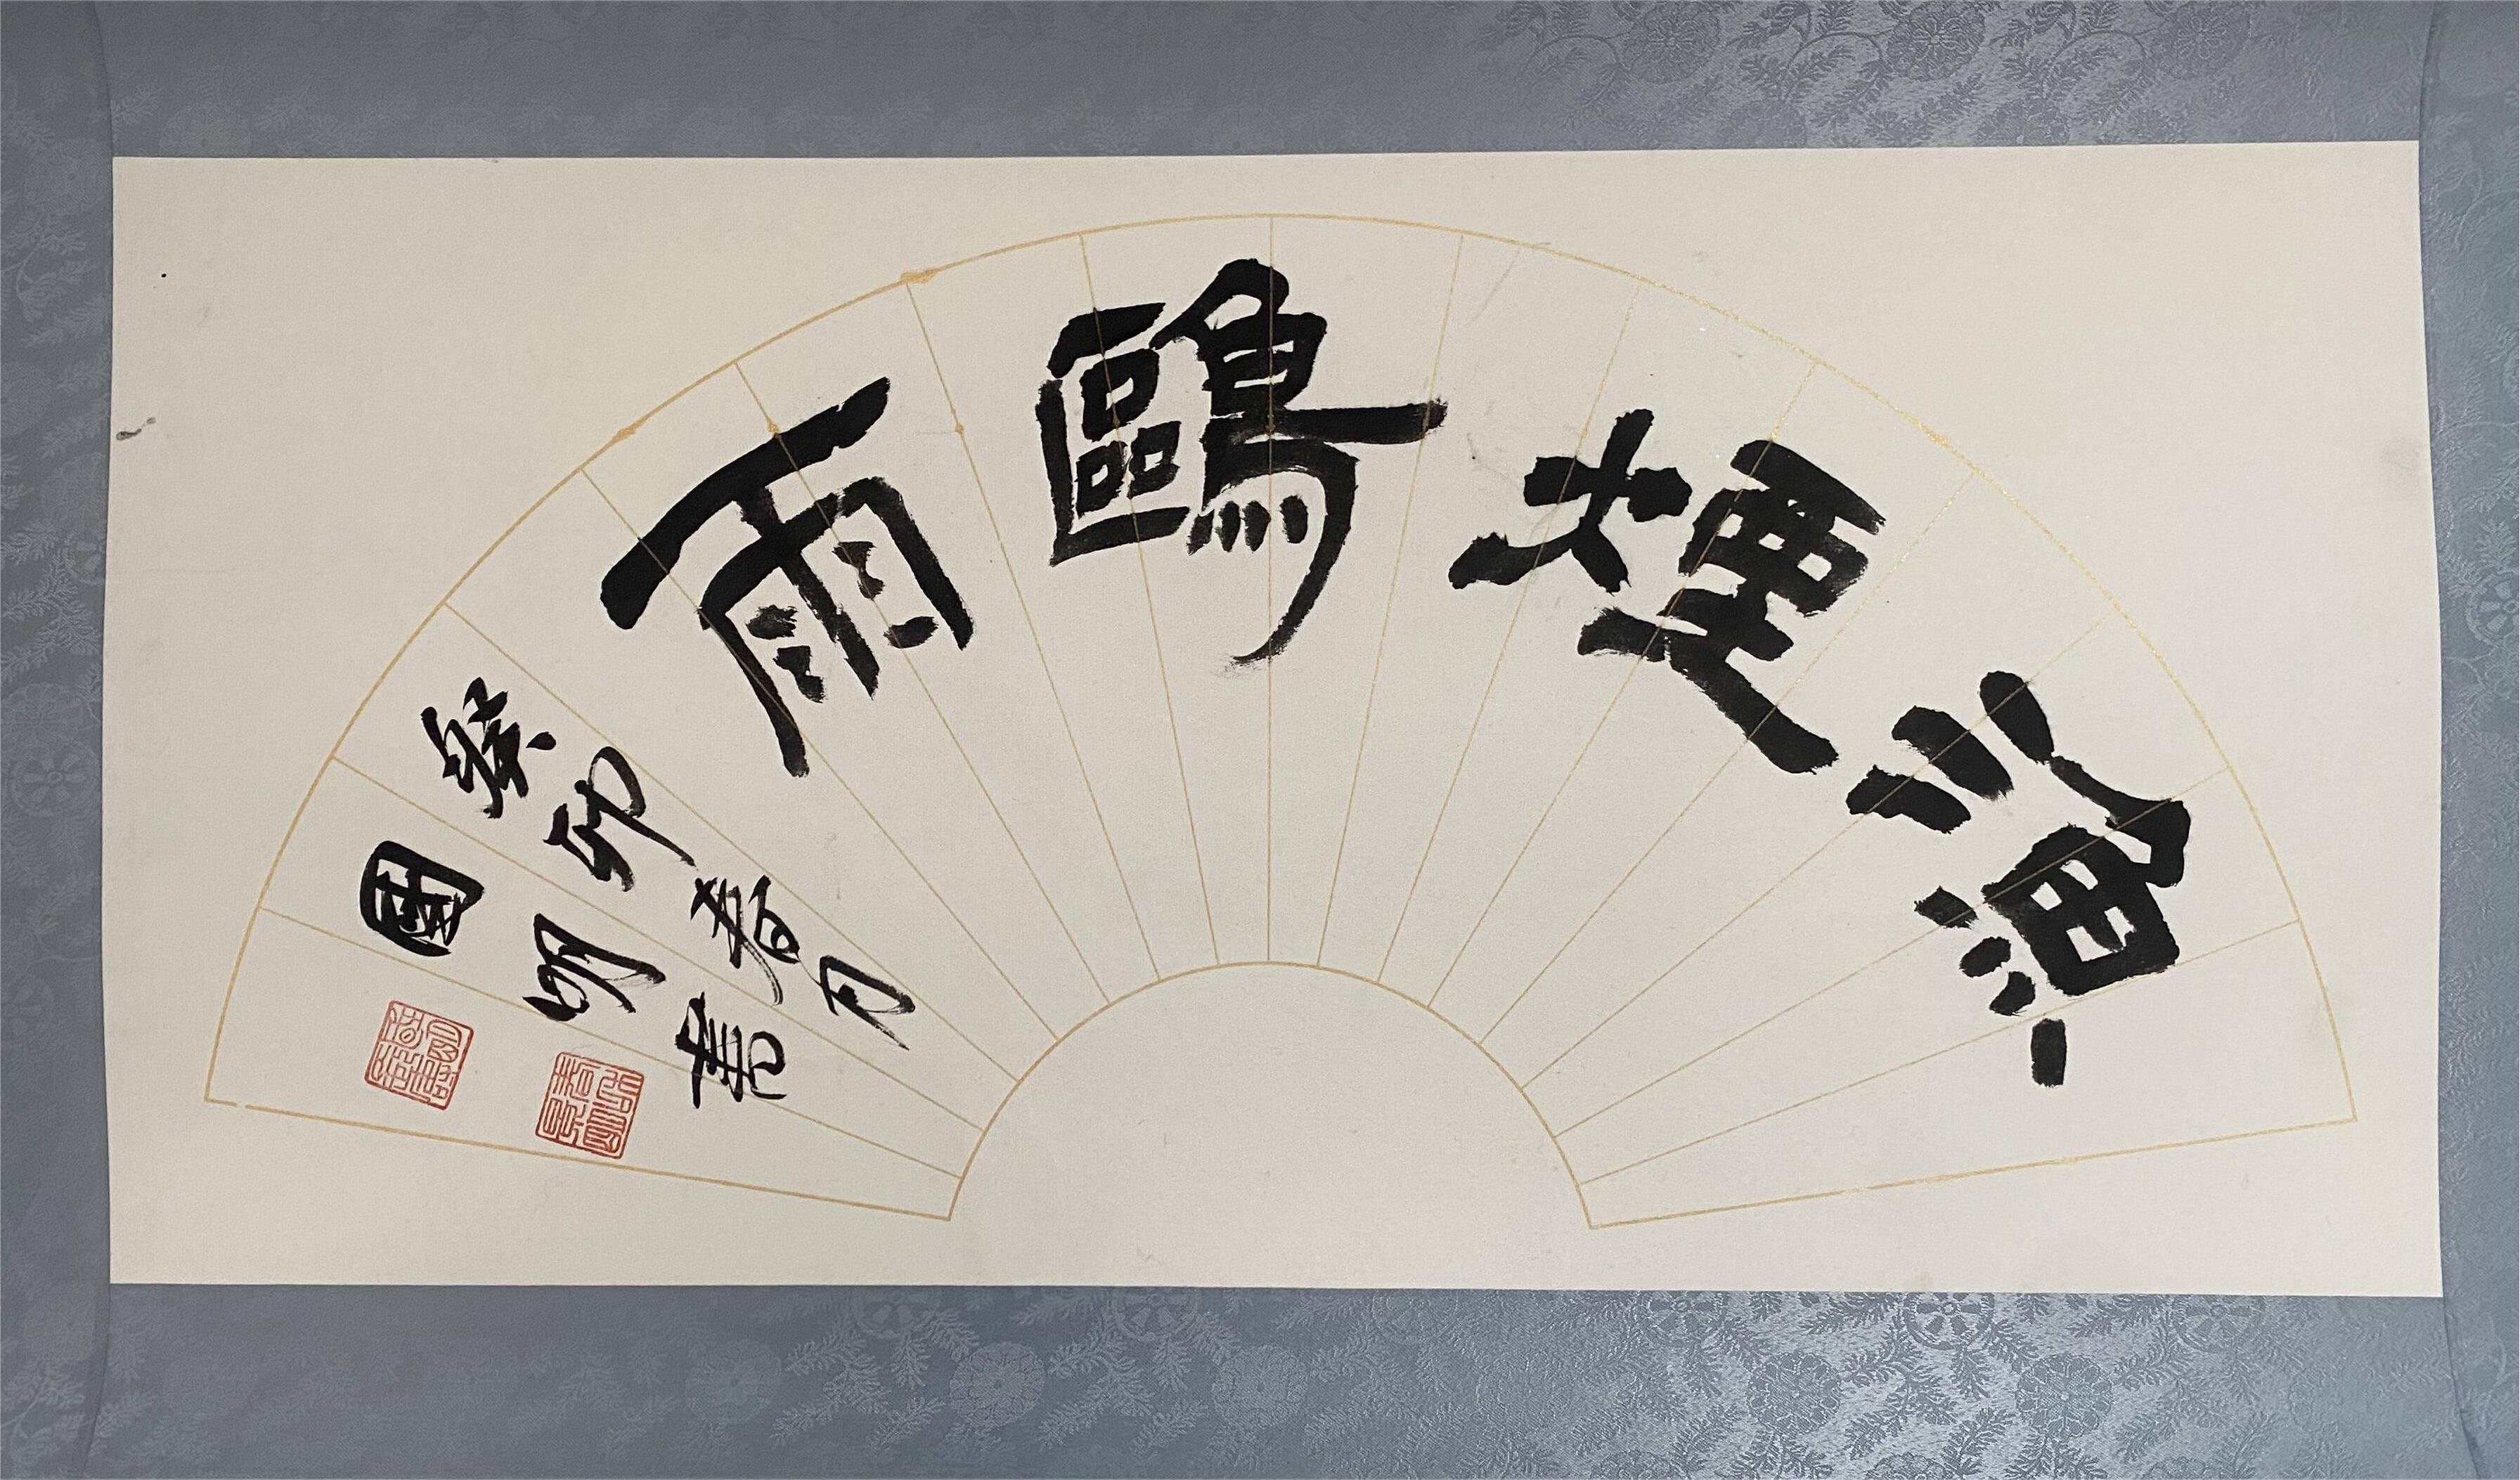 漁煙鷗雨
癸卯春月
國明書